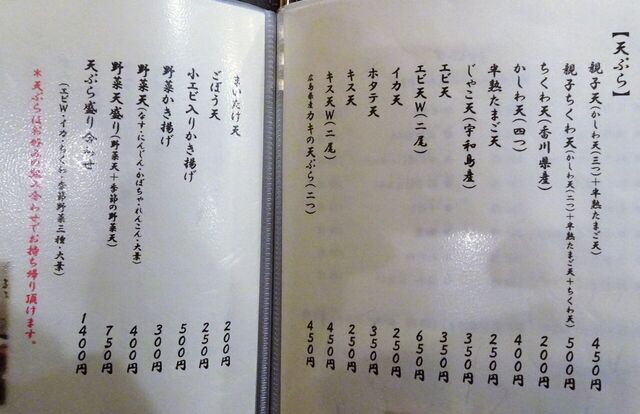 【天ぷら】
親子天(かしわ天(三つ)+半熟たまご天) 450円
親子ちくわ天(かしわ天(二つ)+半熟たまご天+ちくわ天) 500円
ちくわ天(香川県産) 200円
かしわ天(四つ) 400円
半熟たまご天 250円
じゃこ天(宇和島産) 350円
エビ天 350円
エビ天W(二尾) 650円
イカ天 250円
ホタテ天 350円
キス天 250円
キス天W(二尾) 450円
広島県産カキの天ぷら(二つ) 450円
まいたけ天 200円
ごぼう天 250円
小エビ入りかき揚げ 500円
野菜かき揚げ 300円
野菜天(なす・にんじん・かぼちゃ・れんこん・大葉) 400円
野菜天盛り(野菜天+季節の野菜天) 750円
天ぷら盛り合わせ 1400円
(エビW・イカ・ちくわ・季節野菜三種・大葉)
*天ぷらはお好みの組み合わせでお持ち帰り頂けます。